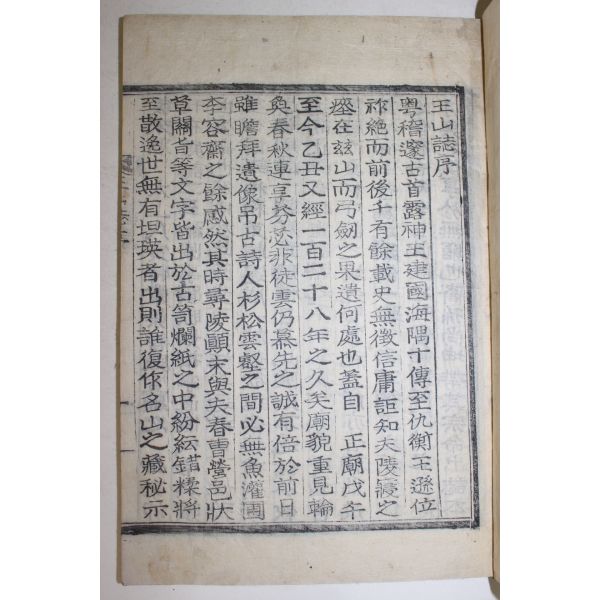 王山誌序
粤稽邃古首露神王建國海隅十傳至仇衡王遜位
祚絶而前後千有餘載史無徵信庸詎知夫陵寢之
座在玆山而弓劒之果遺何處也盖自 正廟戊午
至今乙丑又經一百二十八年之久矣廟貌重見輪
奐春秋連享芬苾非徒雲仍慕先之誠有倍於前日
雖瞻拜遺像吊古詩人杉松雲壑之間必無魚灌園
李容齋之餘感然其時尋陵顚末與夫春曺營邑狀
草關旨等文字皆出於古笥爛紙之中紛紜錯糅將
至散逸世無有坦瑛者出則誰復作名山之藏秘示